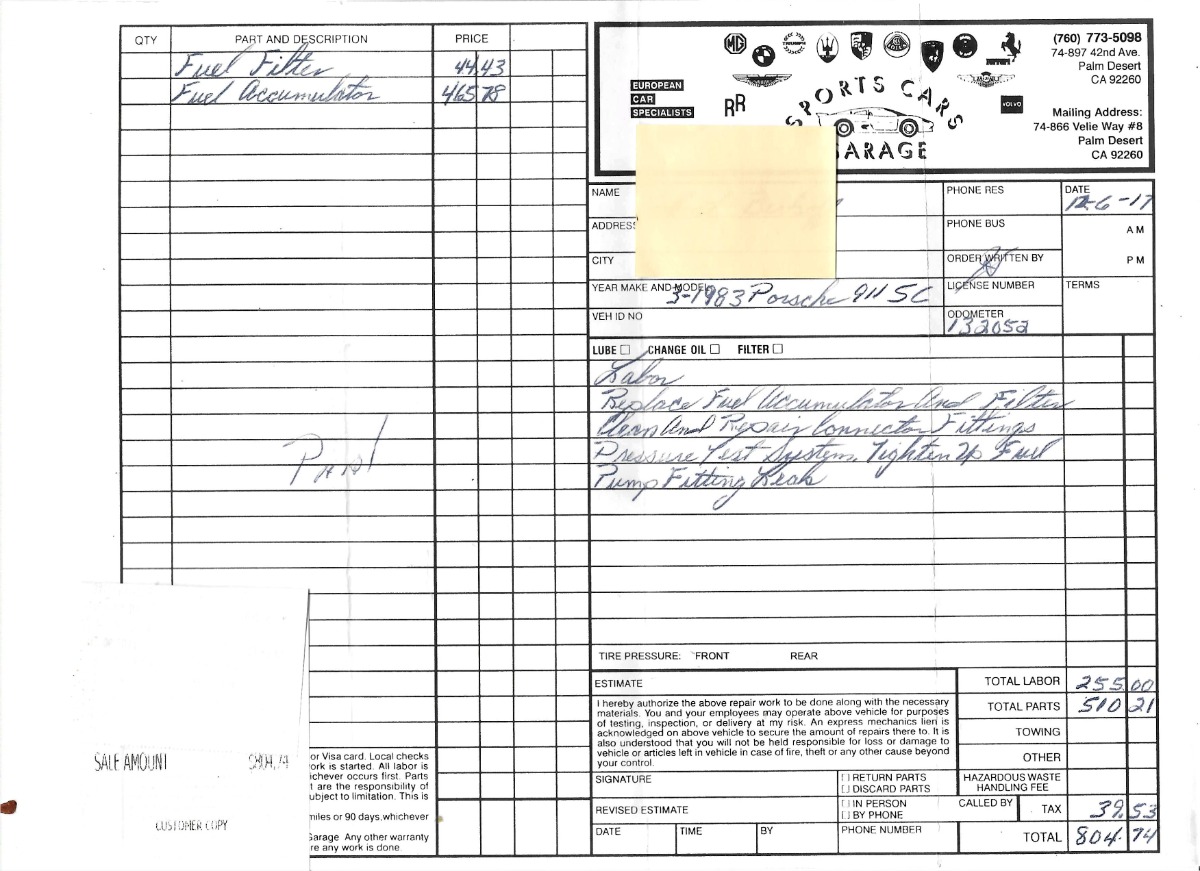 QTY PART AND DESCRIPTION PRICE
Fuel Filter 44.43
Fuel Accumulator 465.78
Paid
SALE AMOUNT $804.74
CUSTOMER COPY
or Visa card. Local checks
ork is started. All labor is
ichever occurs first. Parts
t are the responsibility of
ubject to limitation. This is
miles or 90 days, whichever
Garage. Any other warranty
re any work is done.
EUROPEAN
CAR
SPECIALISTS
MG
TRIUMPH
RR
VOLVO
SPORTS CARS
GARAGE
(760) 773-5098
74-897 42nd Ave.
Palm Desert
CA 92260
Mailing Address:
74-866 Velie Way #8
Palm Desert
CA 92260
NAME PHONE RES DATE
12-6-17
ADDRESS PHONE BUS A M
CITY ORDER WRITTEN BY P M
YEAR MAKE AND MODEL 3-1983 Porsche 911 SC LICENSE NUMBER TERMS
VEH ID NO ODOMETER
132052
LUBE CHANGE OIL FILTER
Labor
Replace Fuel Accumulator And Filter
Clean And Repair Connector Fittings
Pressure Test System. Tighten Up Fuel
Pump Fitting Leak
TIRE PRESSURE: FRONT REAR
ESTIMATE
I hereby authorize the above repair work to be done along with the necessary
materials. You and your employees may operate above vehicle for purposes
of testing, inspection, or delivery at my risk. An express mechanics lien is
acknowledged on above vehicle to secure the amount of repairs there to. It is
also understood that you will not be held responsible for loss or damage to
vehicle or articles left in vehicle in case of fire, theft or any other cause beyond
your control.
SIGNATURE
RETURN PARTS
DISCARD PARTS
REVISED ESTIMATE
IN PERSON
BY PHONE
CALLED BY
DATE TIME BY PHONE NUMBER
TOTAL LABOR 255.00
TOTAL PARTS 510 21
TOWING
OTHER
HAZARDOUS WASTE
HANDLING FEE
TAX 39.53
TOTAL 804.74